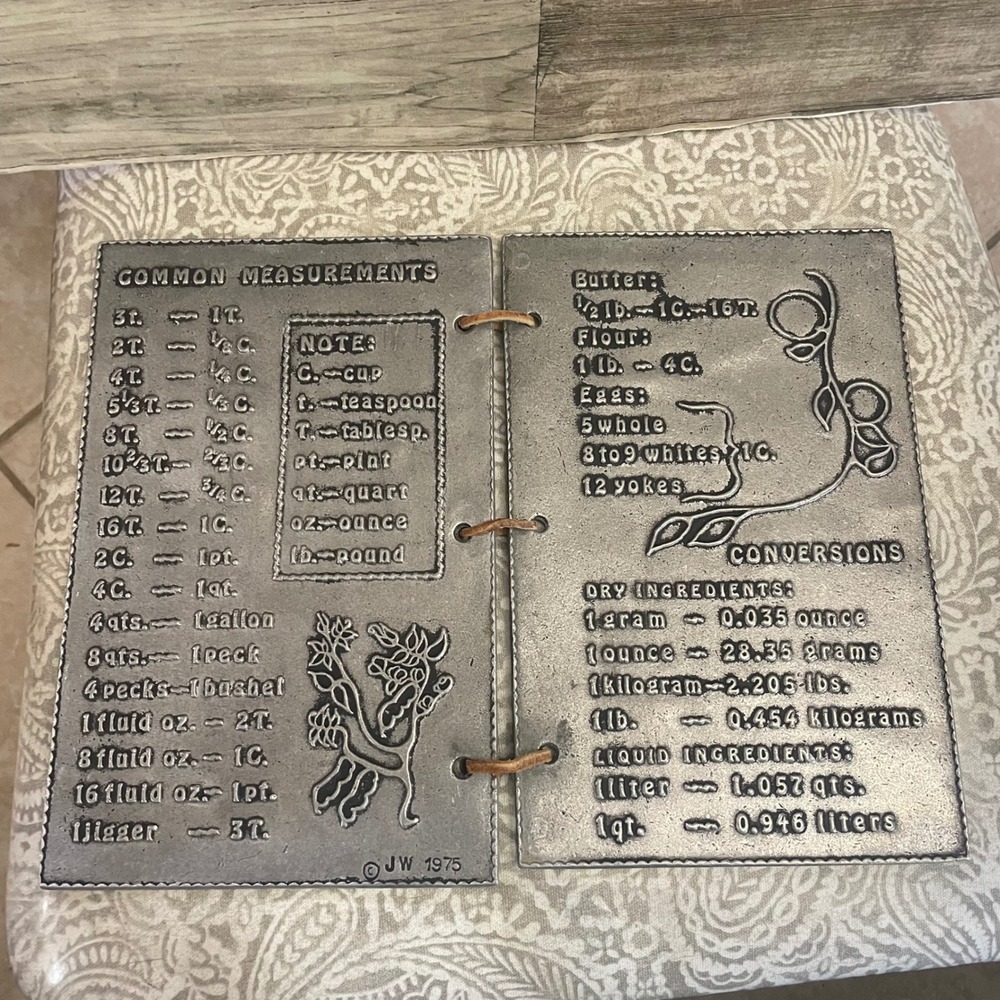 COMMON MEASUREMENTS
3t. — 1T.
2T. — 1/8 C.
4T. — 1/4 C.
5 1/3 T. — 1/3 C.
8T. — 1/2 C.
10 2/3 T. — 2/3 C.
12T. — 3/4 C.
16T. — 1C.
2C. — 1pt.
4C. — 1qt.
4qts. — 1gallon
8qts. — 1peck
4pecks — 1bushel
1fluid oz. — 2T.
8fluid oz. — 1C.
16fluid oz. — 1pt.
1jigger — 3T.
NOTE:
C. — cup
t. — teaspoon
T. — tablesp.
pt. — pint
qt. — quart
oz. — ounce
lb. — pound
© JW 1975
Butter:
1/2 lb. — 1C. — 16T.
Flour:
1 lb. — 4C.
Eggs:
5 whole
8to9 whites } 1C.
12 yokes
CONVERSIONS
DRY INGREDIENTS:
1gram — 0.035 ounce
1ounce — 28.35 grams
1kilogram — 2.205 lbs.
1lb. — 0.454 kilograms
LIQUID INGREDIENTS:
1liter — 1.057 qts.
1qt. — 0.946 liters